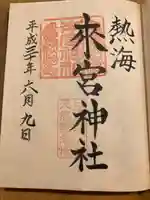 熱海
來宮神社
平成三十年六月九日